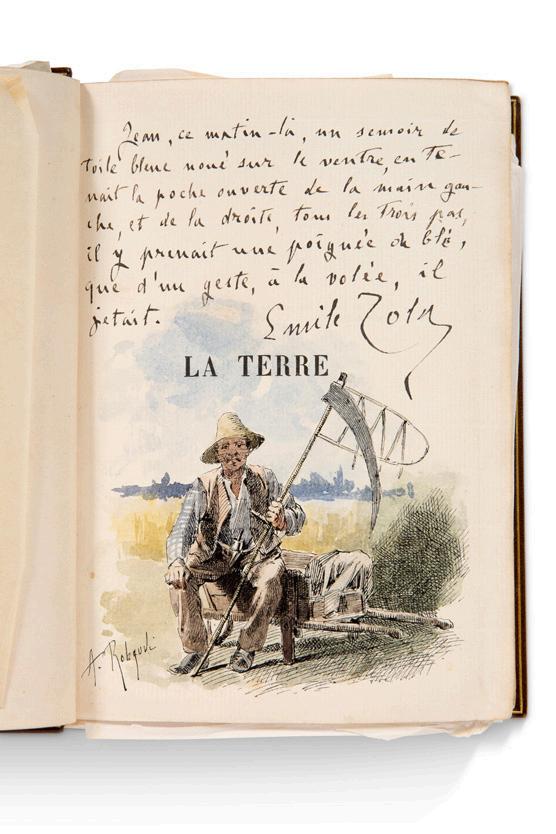 Jean, ce matin-là, un semoir de
toile bleue noué sur le ventre, en te-
nait la poche ouverte de la main gau-
che, et de la droite, tous les trois pas,
il y prenait une poignée de blé,
que d'un geste, à la volée, il
jetait.
Emile Zola
LA TERRE
A. Robaudi